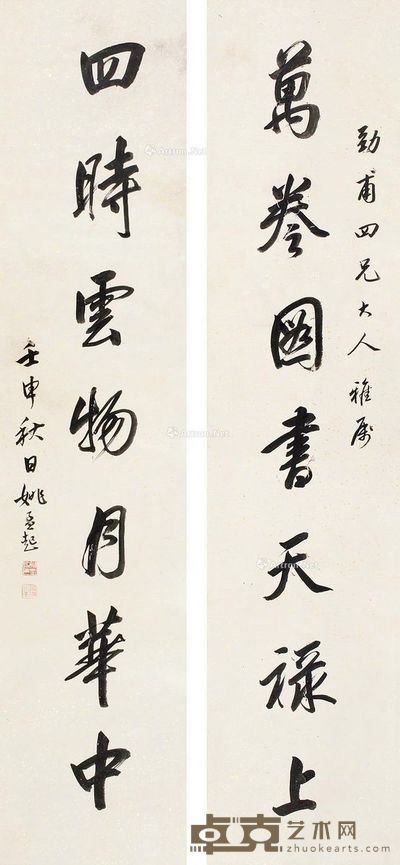 勁甫四兄大人雅屬
萬卷圖書天祿上
四時雲物月華中
壬申秋日姚孟起
Artron.Net
卓克艺术网
zhuokearts.com